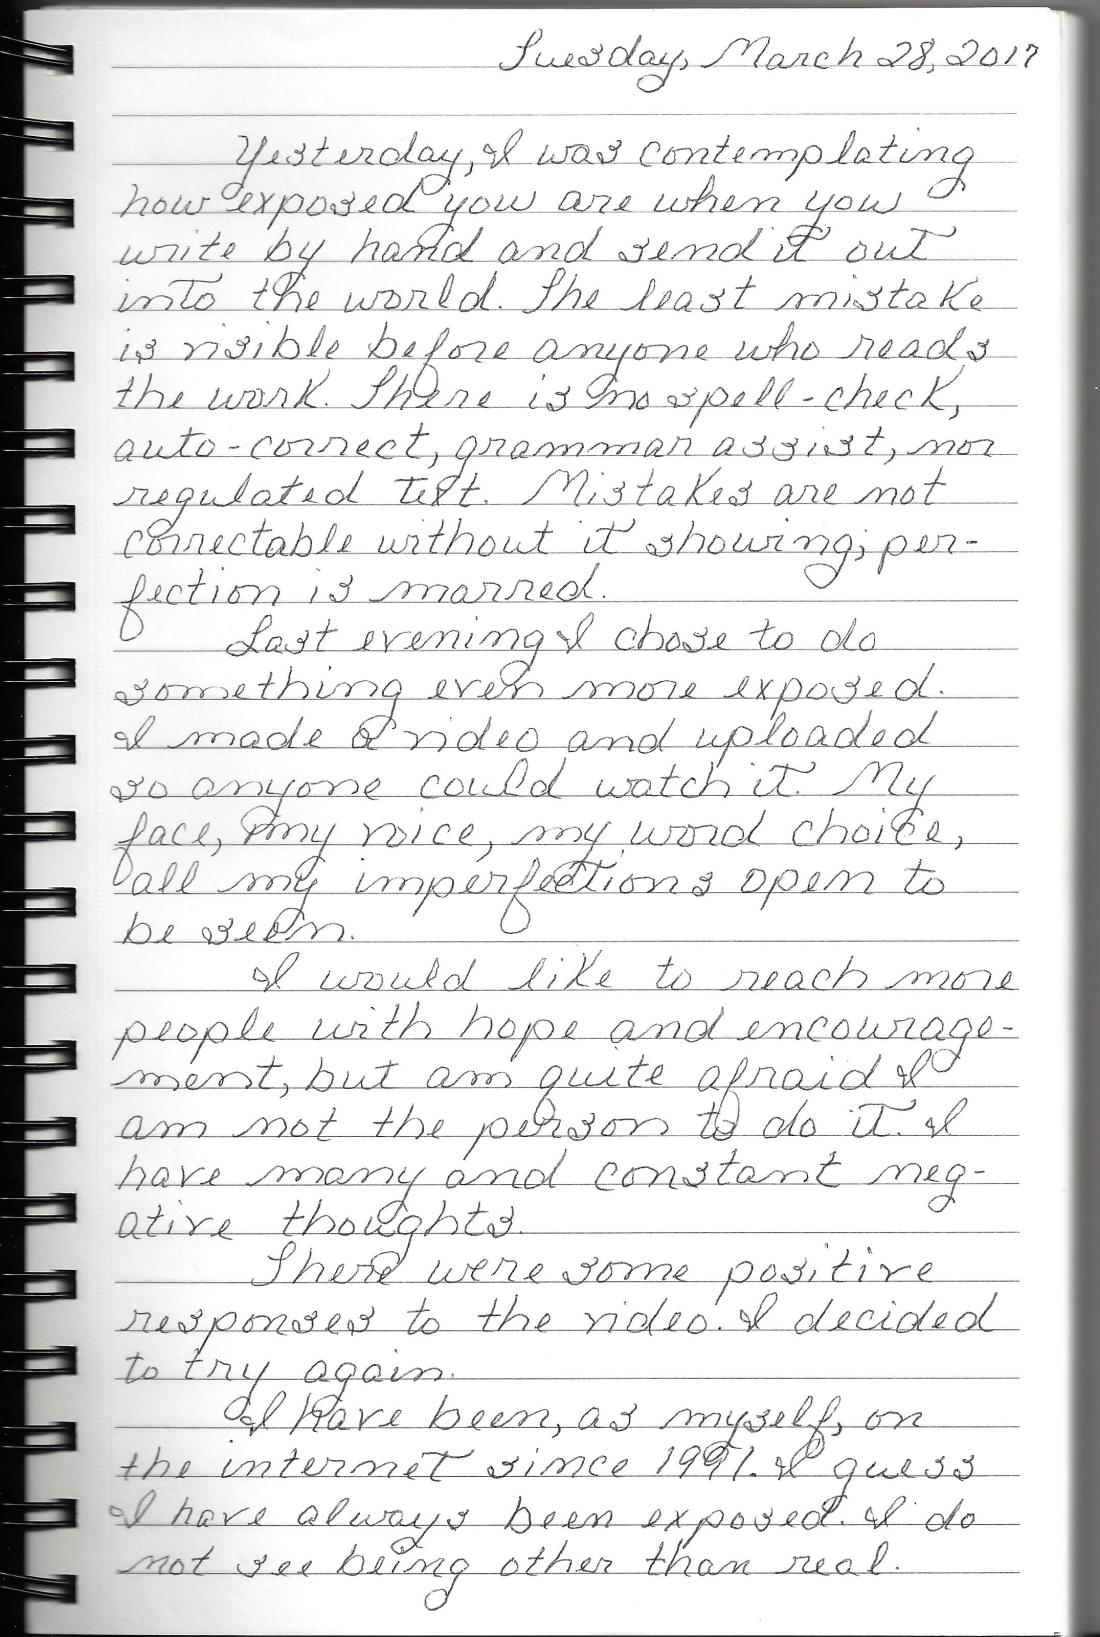 Tuesday, March 28, 2017
Yesterday, I was contemplating
how exposed you are when you
write by hand and send it out
into the world. The least mistake
is visible before anyone who reads
the work. There is no spell-check,
auto-correct, grammar assist, nor
regulated text. Mistakes are not
correctable without it showing; per-
fection is marred.
Last evening I chose to do
something even more exposed.
I made a video and uploaded
so anyone could watch it. My
face, my voice, my word choice,
all my imperfections open to
be seen.
I would like to reach more
people with hope and encourage-
ment, but am quite afraid I
am not the person to do it. I
have many and constant neg-
ative thoughts.
There were some positive
responses to the video. I decided
to try again.
I have been, as myself, on
the internet since 1991. I guess
I have always been exposed. I do
not see being other than real.